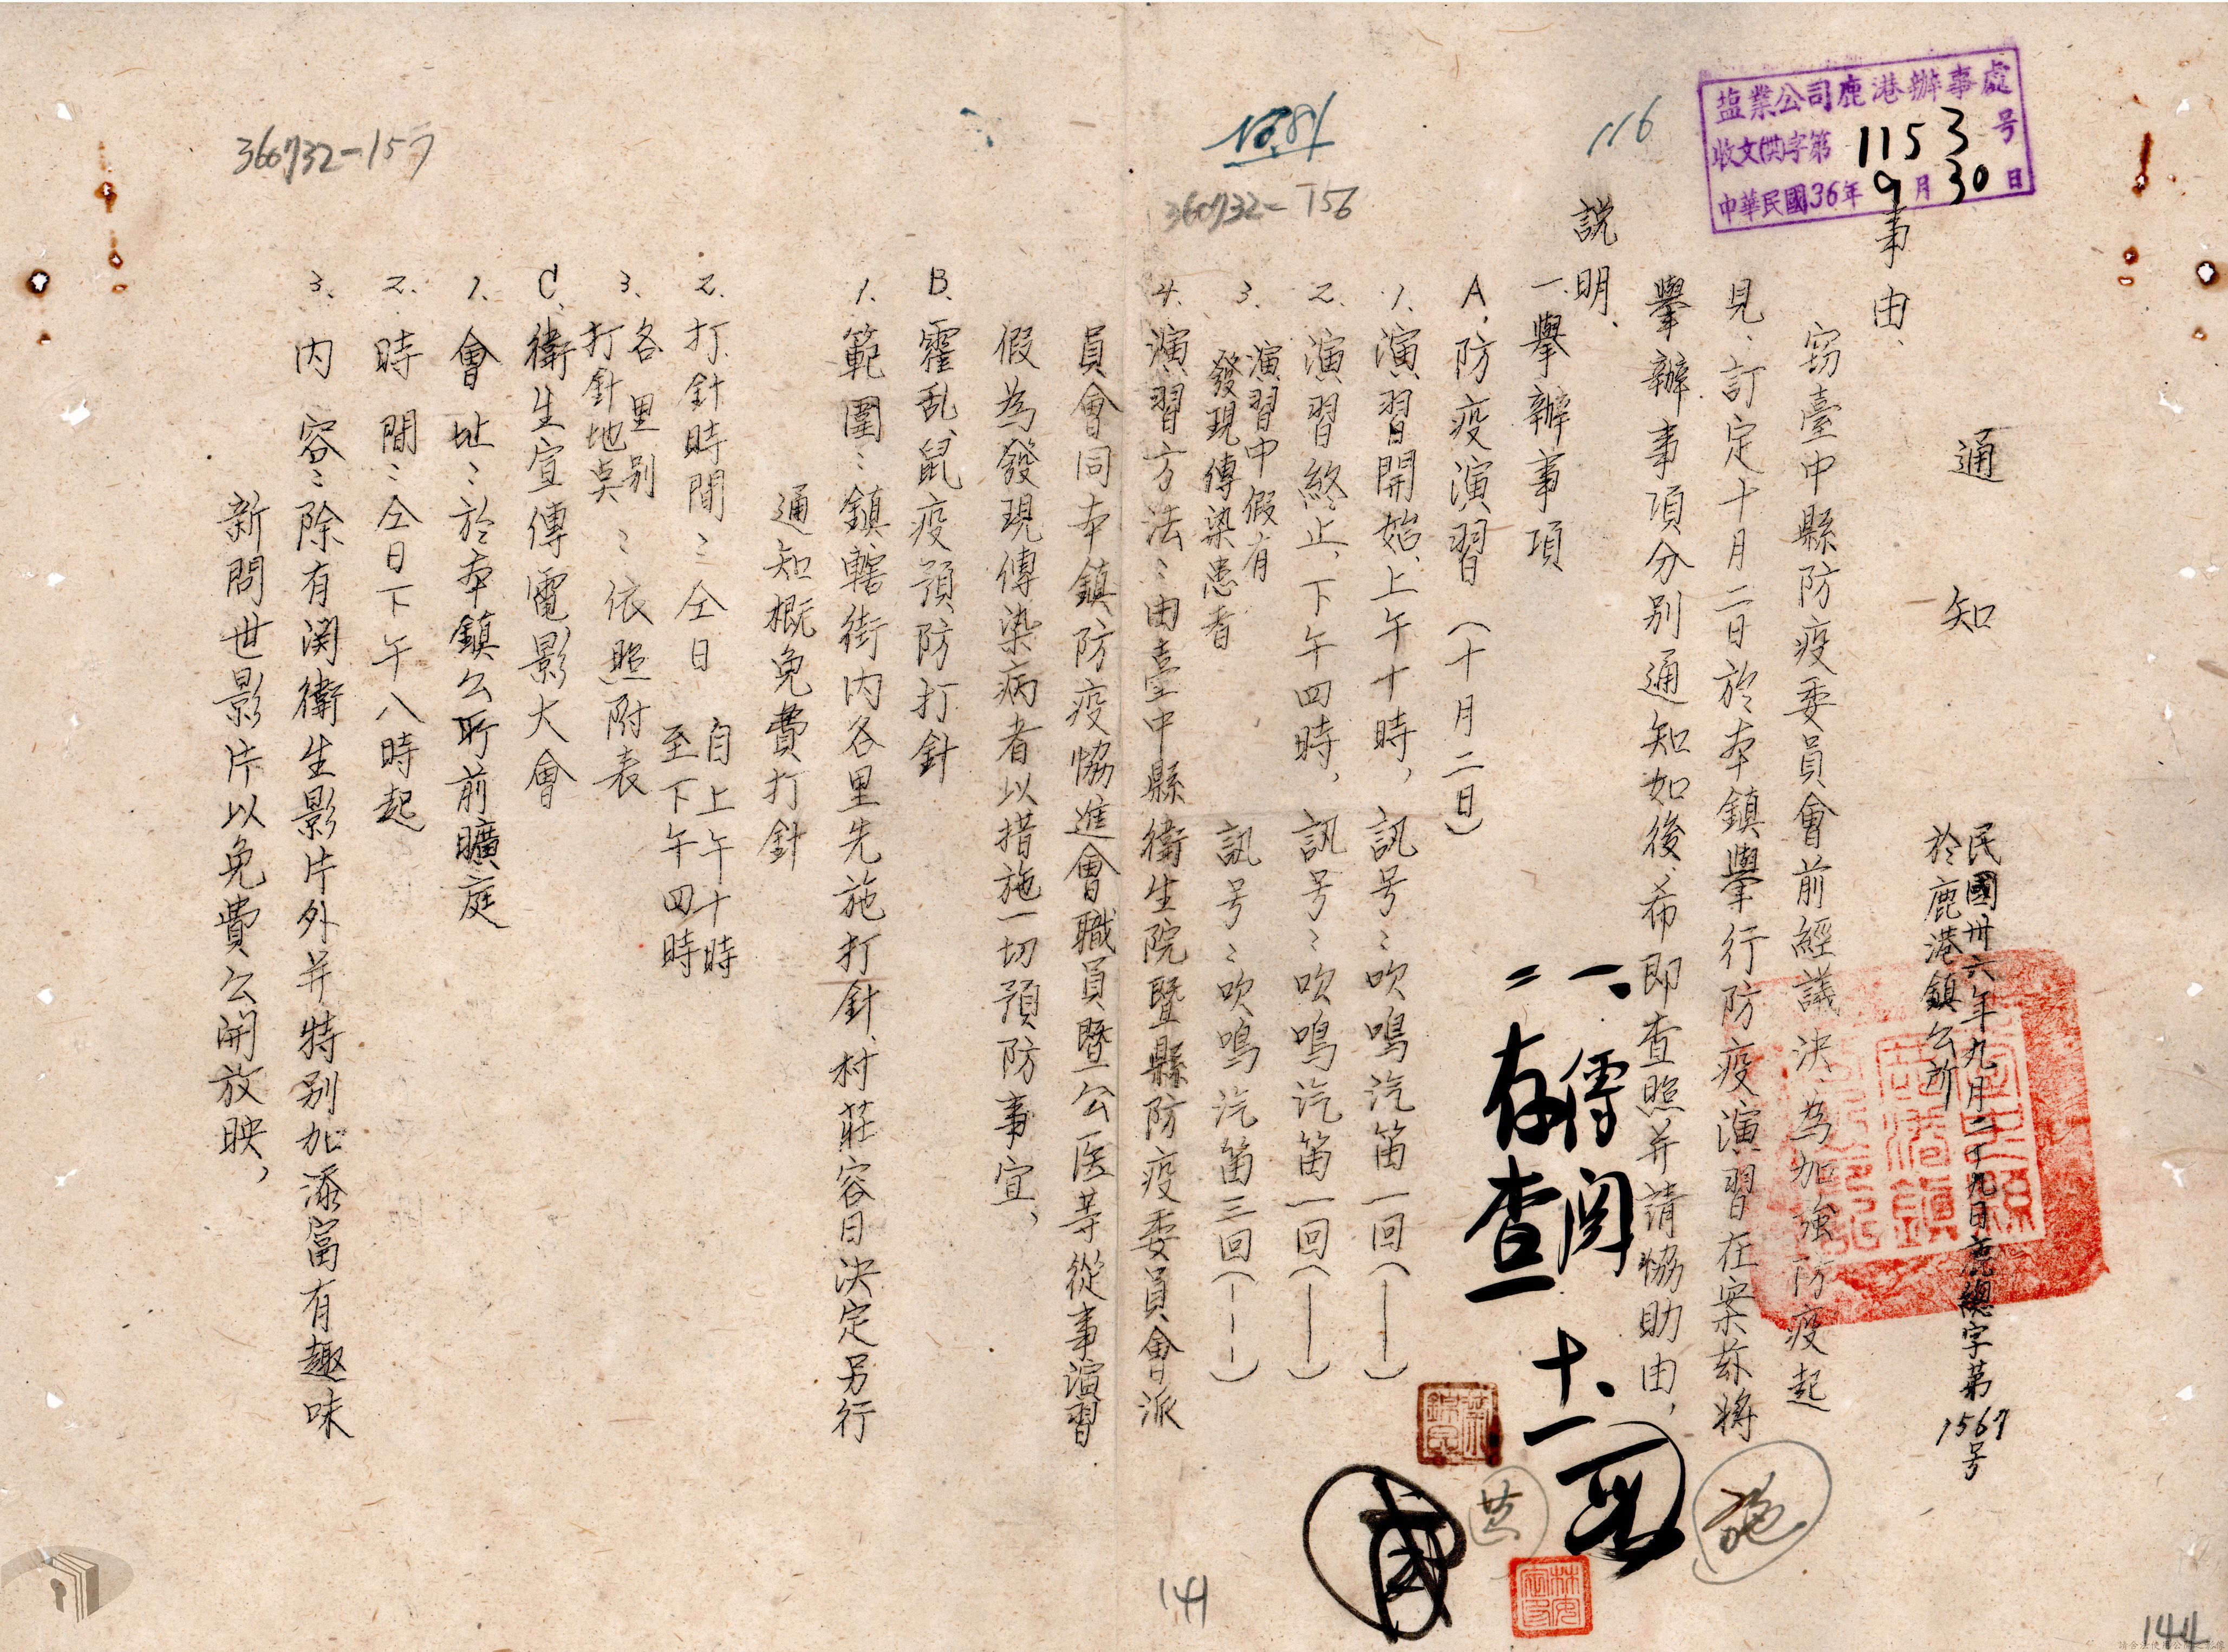 塩業公司鹿港辦事處
收文(業)字第1153号
中華民國36年9月30日
116
No.81
360732-156
360732-157
通知
民國卅六年九月二十九日鹿總字第1567号
於鹿港鎮公所
事由、
竊臺中縣防疫委員會前經議決、為加強防疫起
見、訂定十月二日於本鎮舉行防疫演習在案茲將
舉辦事項分別通知如後、希即查照并請協助由,
說明、
一、舉辦事項
A、防疫演習(十月二日)
1、演習開始、上午十時,訊号:吹鳴汽笛一回(—)
2、演習終止、下午四時,訊号:吹鳴汽笛一回(—)
3、演習中假有發現傳染患者 訊号:吹鳴汽笛三回(---)
4、演習方法:由臺中縣衛生院暨縣防疫委員會派
員會同本鎮防疫協進會職員暨公医等從事演習
假為發現傳染病者以措施一切預防事宜,
B、霍乱、鼠疫預防打針
1、範圍:鎮轄街内各里先施打針、村莊容日決定另行
通知概免費打針
2、打針時間:仝日 自上午十時至下午四時
3、各里別打針地点:依照附表
C、衛生宣傳電影大會
1、會址:於本鎮公所前曠庭
2、時間:仝日下午八時起
3、内容:除有関衛生影片外并特別加添富有趣味
新問世影片以免費公開放映,
一、傳閱
二、存查
十、一
施
141
144